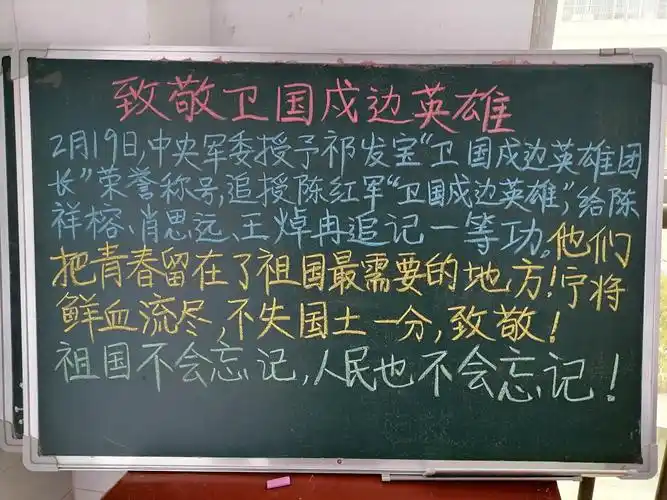 致敬卫国戍边英雄
2月19日,中央军委授予祁发宝“卫国戍边英雄团
长”荣誉称号,追授陈红军“卫国戍边英雄”,给陈
祥榕、肖思远、王焯冉追记一等功。他们
把青春留在了祖国最需要的地方!宁将
鲜血流尽,不失国土一分,致敬!
祖国不会忘记,人民也不会忘记!